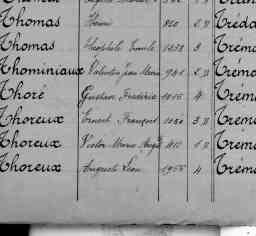 Thomas Henri 820 2 R Tréda
Thomas Théophile Emile 1258 3 Trémo
Thominiaux Valentin Jean Marie 941 2 R Trémo
Thoré Gustave Frédéric 1015 4 Trémo
Thoreux Ernest François 1020 3 R Trémo
Thoreux Victor Marie Aug 1 R Trémo
Thoreux Auguste Léon 1955 4 Trém